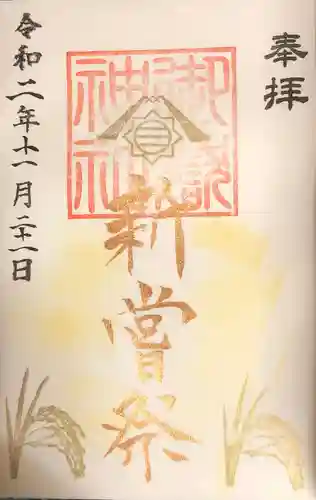 奉拝
神社
新嘗祭
令和二年十一月二十一日